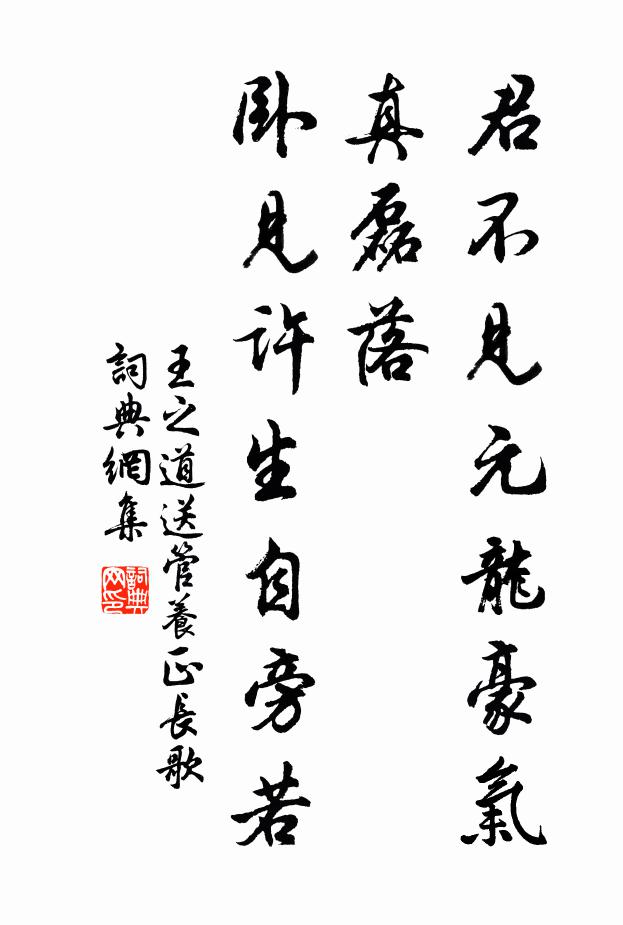 君不見元龍豪氣
真磊落
卧見許生自旁若
王之道送管養正長歌
詞典網集
詞典網印